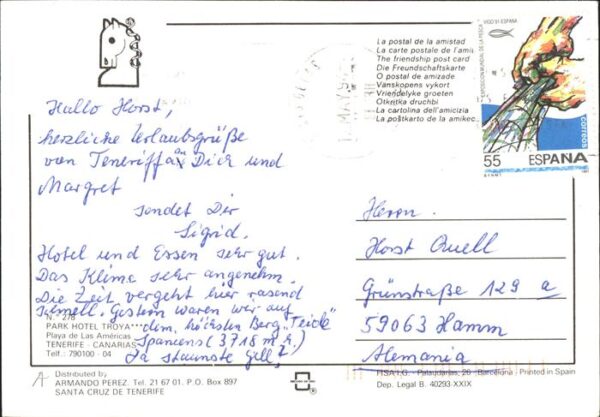 La postal de la amistad
La carte postale de l'amit
The friendship post card
Die Freundschaftskarte
O postal de amizade
Vanskopens vykort
Vriendelyke groeten
Otkritka druchbi
La cartolina dell'amicizia
La postkarto de la amikec
VIGO 91 ESPAÑA
EXPOSICION MUNDIAL DE LA PESCA
correos
55 ESPAÑA
Hallo Horst,
herzliche Urlaubsgrüße
von Teneriffa an Dich und
Margret
sendet Dir
Sigrid.
Hotel und Essen sehr gut.
Das Klima sehr angenehm.
Die Zeit vergeht hier rasend
schnell. Gestern waren wir auf
dem höchsten Berg "Teide"
Spaniens (3718 m h.)
Da staunste gell?
Herrn
Horst Quell
Grünstraße 129 a
59063 Hamm
Alemania
N.° 278
PARK HOTEL TROYA***
Playa de Las Américas
TENERIFE - CANARIAS
Telf.: 790100 - 04
Distributed by
ARMANDO PEREZ. Tel. 21 67 01. P.O. Box 897
SANTA CRUZ DE TENERIFE
FISA I.G. - Palaudarias, 26 - Barcelona - Printed in Spain
Dep. Legal B. 40293-XXIX